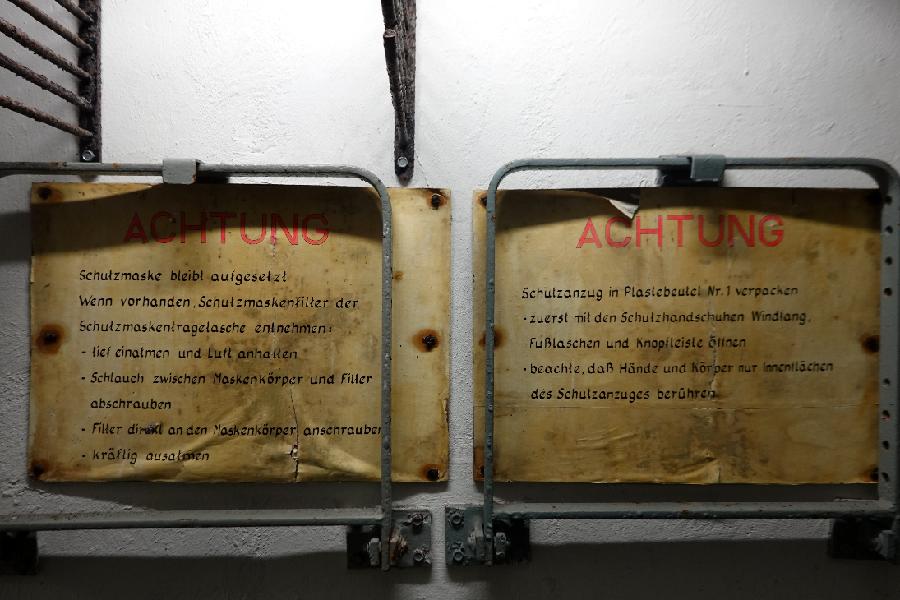 ACHTUNG
Schutzmaske bleibt aufgesetzt
Wenn vorhanden, Schutzmaskenfilter der
Schutzmaskentragetasche entnehmen:
- tief einatmen und Luft anhalten
- Schlauch zwischen Maskenkörper und Filter
abschrauben
- Filter direkt an den Maskenkörper anschrauben
- kräftig ausatmen
ACHTUNG
Schutzanzug in Plastebeutel Nr. 1 verpacken
· zuerst mit den Schutzhandschuhen Windlang,
Fußlaschen und Knopfleiste öffnen
· beachte, daß Hände und Körper nur Innenflächen
des Schutzanzuges berühren